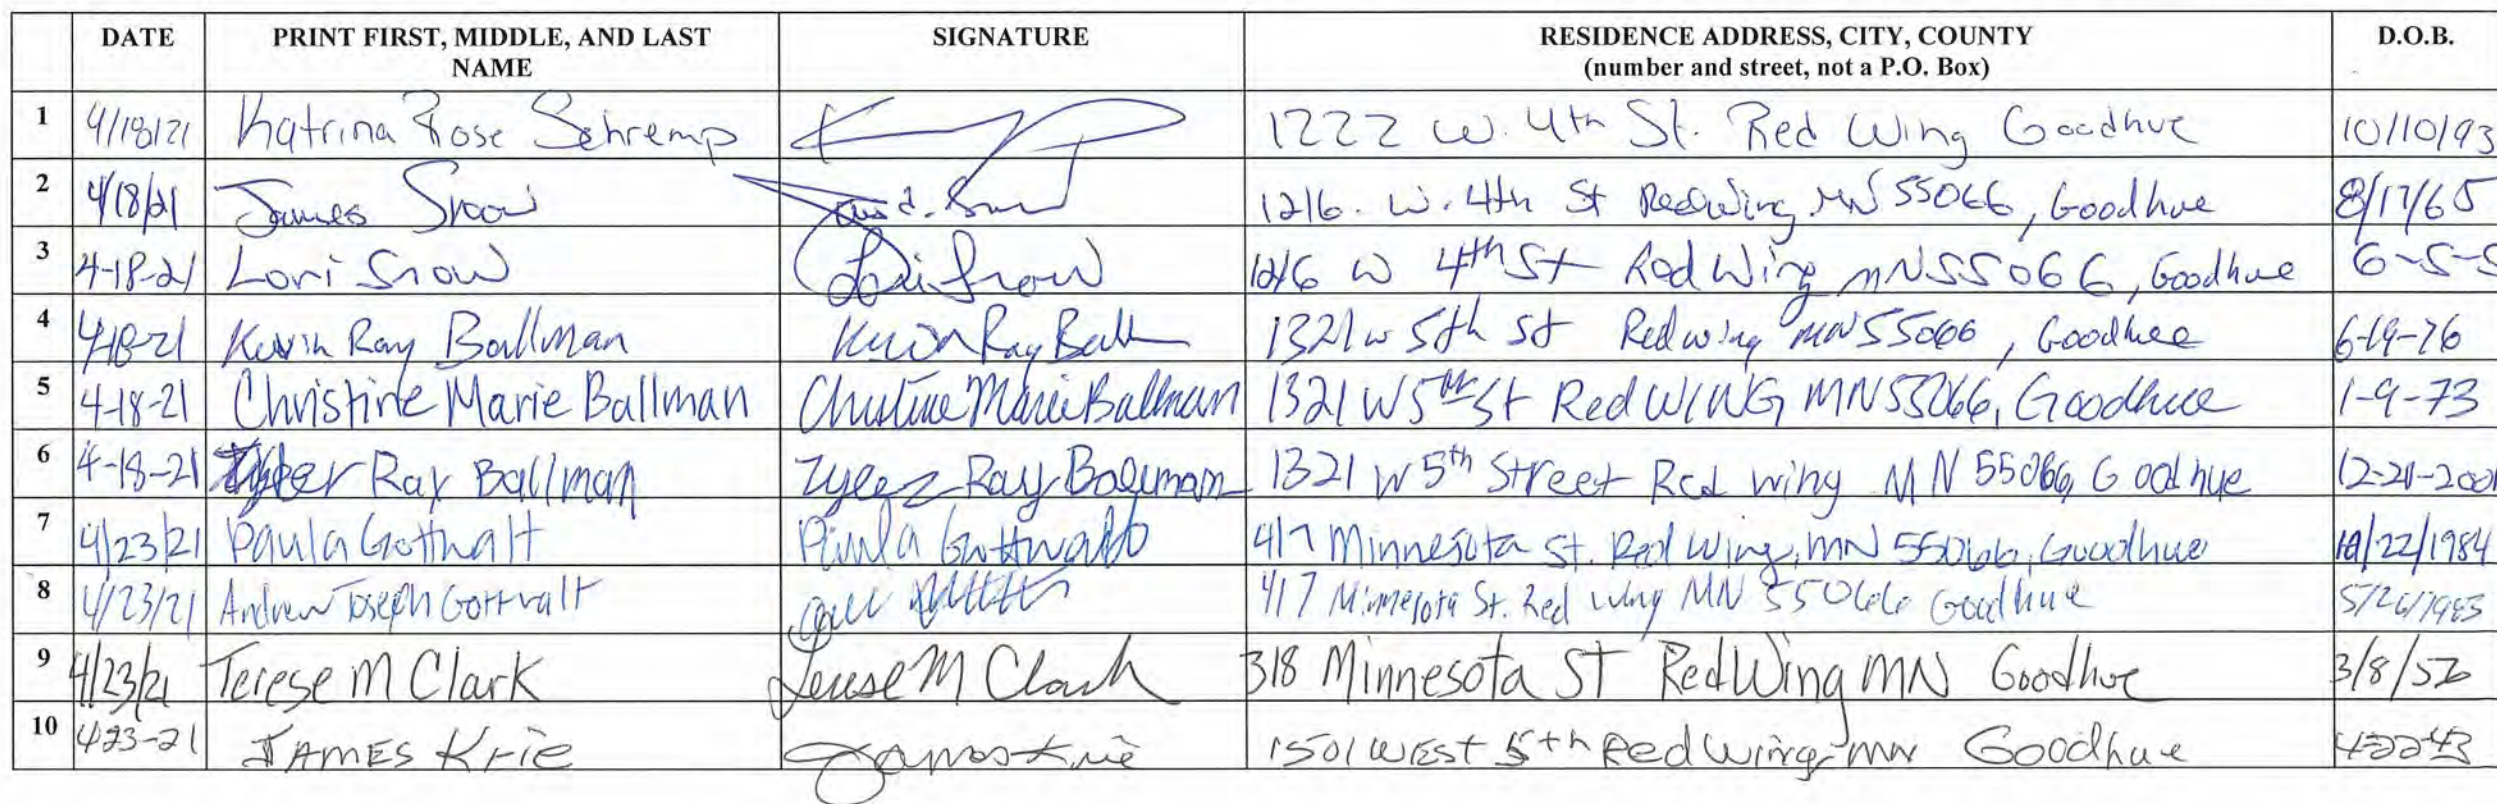 DATE PRINT FIRST, MIDDLE, AND LAST NAME SIGNATURE RESIDENCE ADDRESS, CITY, COUNTY (number and street, not a P.O. Box) D.O.B.
1 4/18/21 Katrina Rose Schremp 1222 W. 4th St. Red Wing Goodhue 10/10/93
2 4/18/21 James Snow 1216. W. 4th St Red Wing MN 55066, Goodhue 8/17/65
3 4-18-21 Lori Snow Lori Snow 1216 W 4th St Red Wing MN 55066, Goodhue 6-5-5
4 4-18-21 Kevin Ray Ballman Kevin Ray Ball 1321 w 5th st Red wing MN 55066, Goodhue 6-19-76
5 4-18-21 Christine Marie Ballman Christine Marie Ballman 1321 W 5th St Red WING, MN 55066, Goodhue 1-9-73
6 4-18-21 Tyler Ray Ballman Tyler Ray Ballman 1321 W 5th Street Red wing MN 55066, Goodhue 12-21-2001
7 4/23/21 Paula Gottwalt Paula Gottwalt 417 Minnesota St. Red Wing, MN 55066, Goodhue /22/1984
8 4/23/21 Andrew Joseph Gottwalt 417 Minnesota St. Red Wing MN 55066 Goodhue 5/26/1985
9 4/23/21 Terese M Clark Terese M Clark 318 Minnesota ST Red Wing MN Goodhue 3/8/52
10 423-21 JAMES Krie James Krie 1501 WEST 5th Red Wing-MN Goodhue 42243